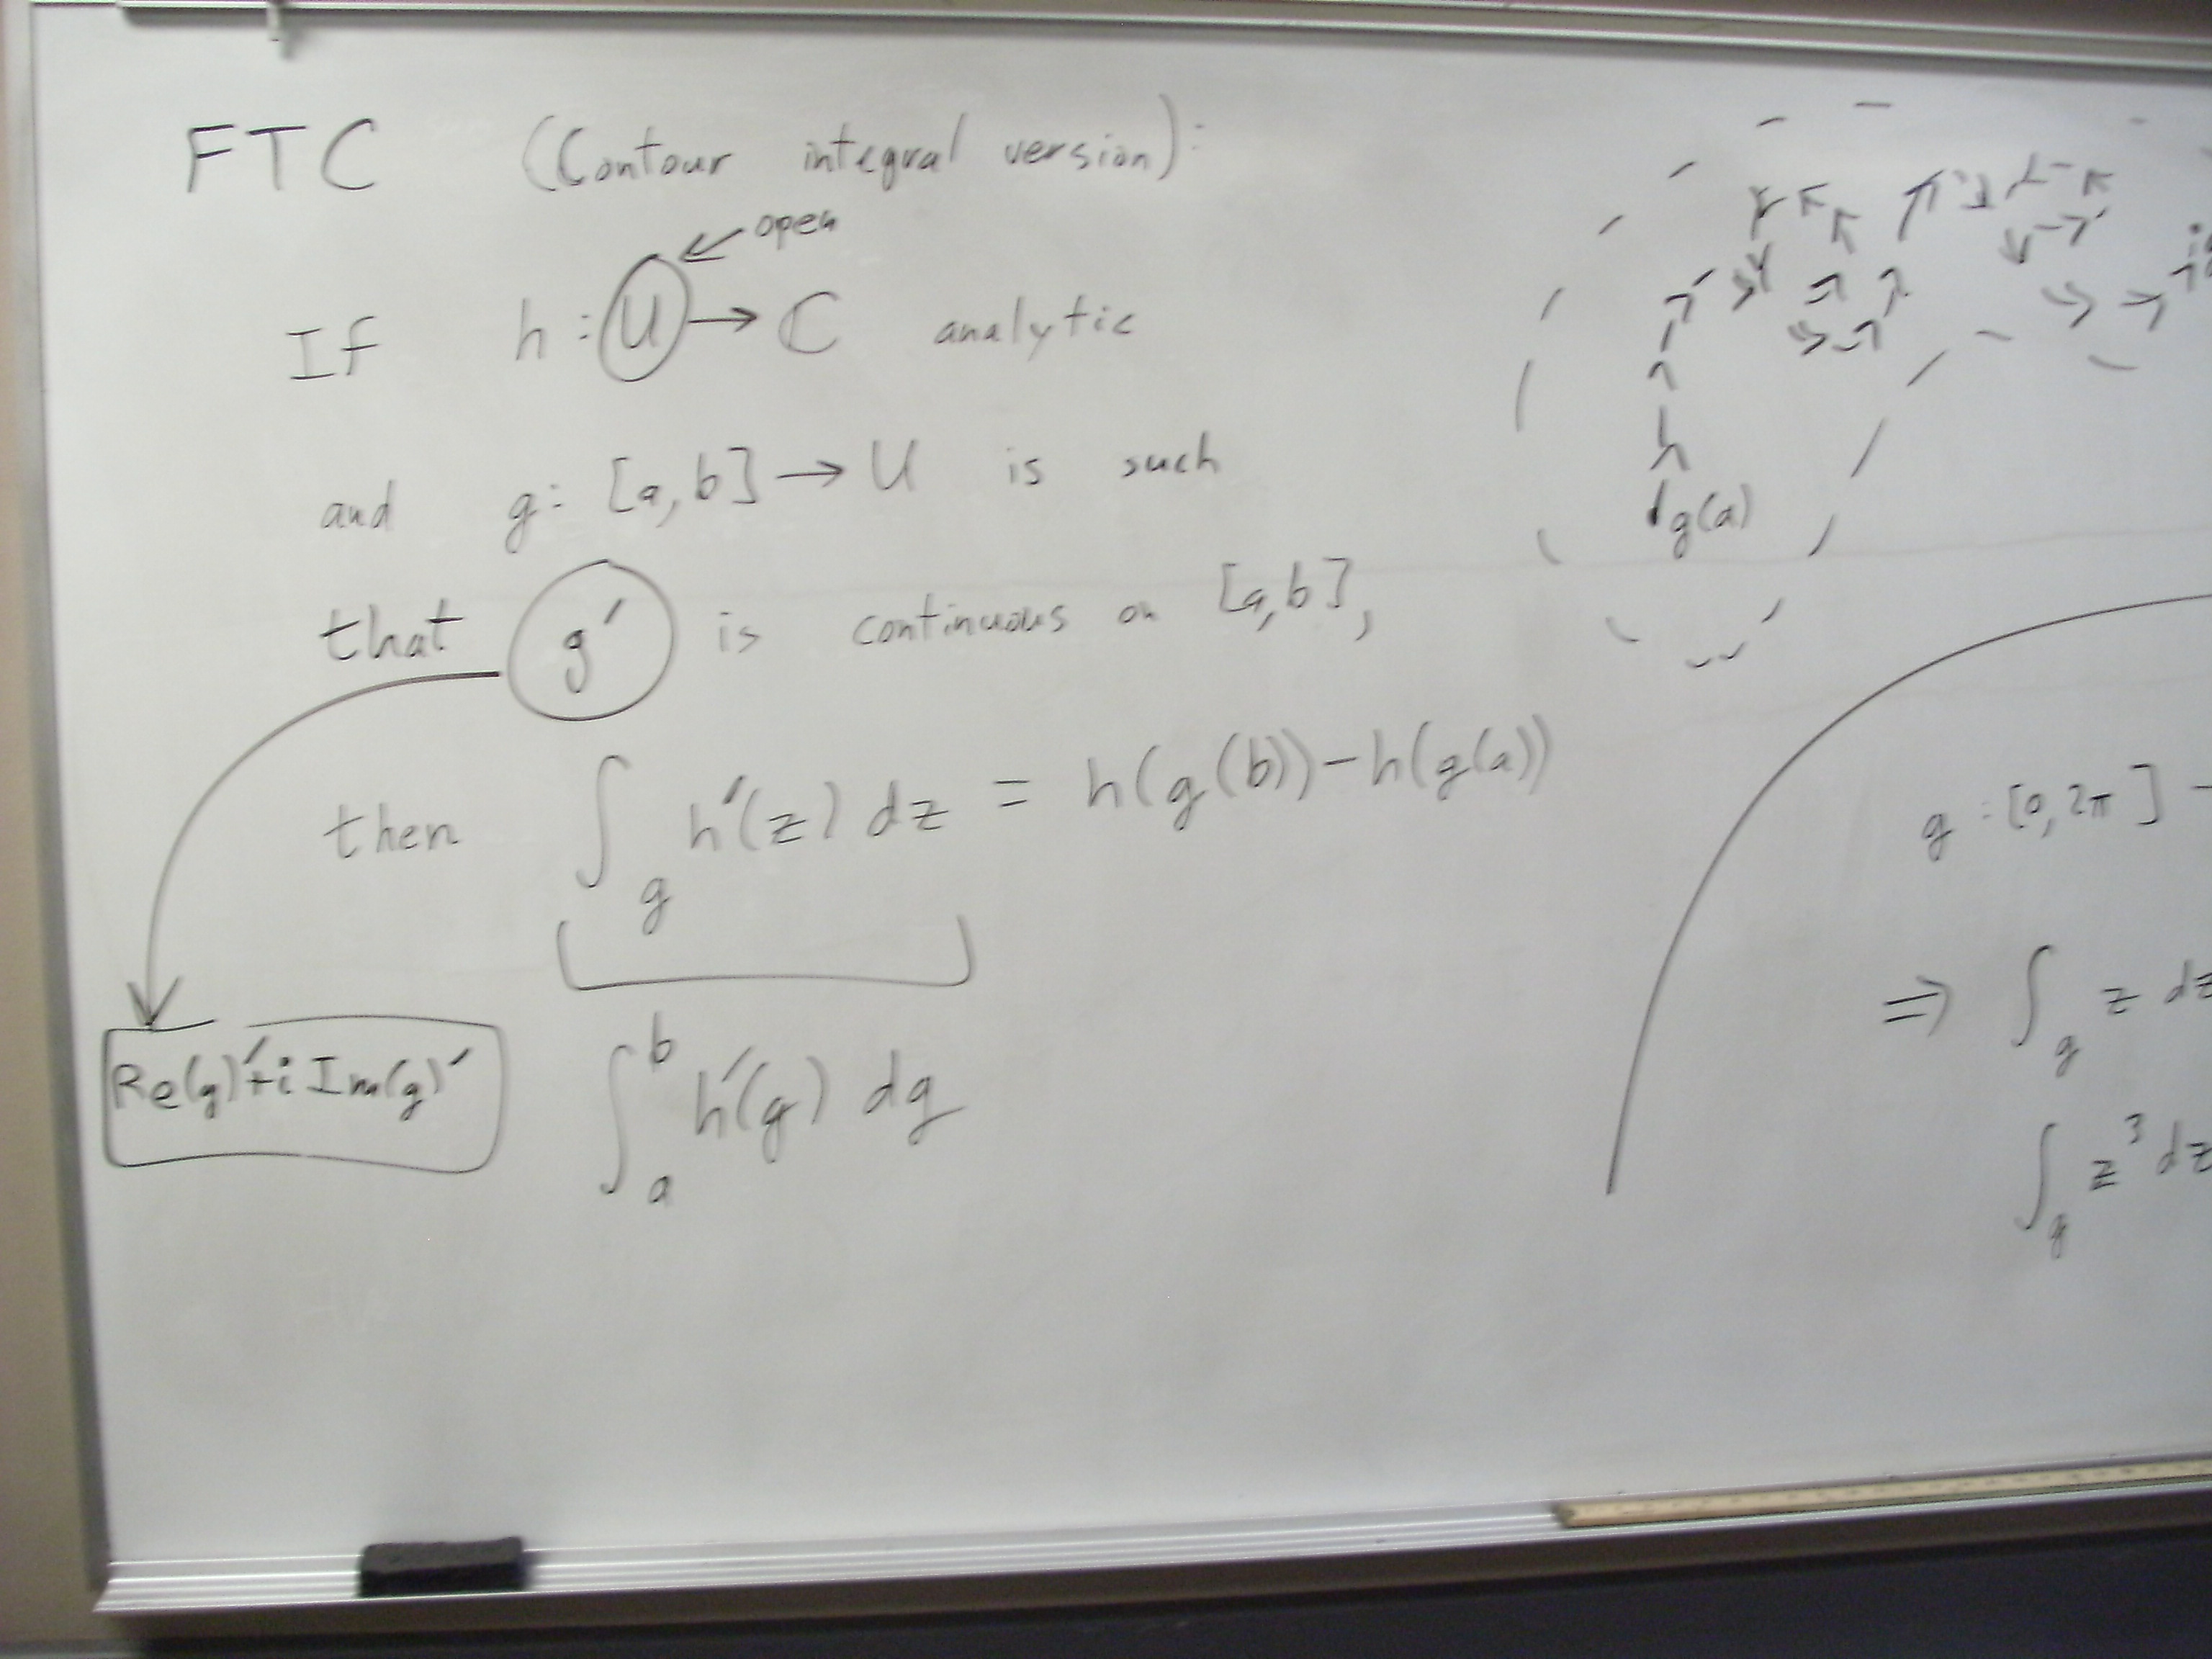 FTC (Contour integral version):
open
If h : U → ℂ analytic
and g: [a, b] → U is such
that g′ is continuous on [a, b],
then ∫_g h′(z) dz = h(g(b)) − h(g(a))
Re(g)′+i Im(g)′
∫_a^b h′(g) dg
g(a)
g : [0, 2π] -
⇒ ∫_g z dz
∫_g z³ dz